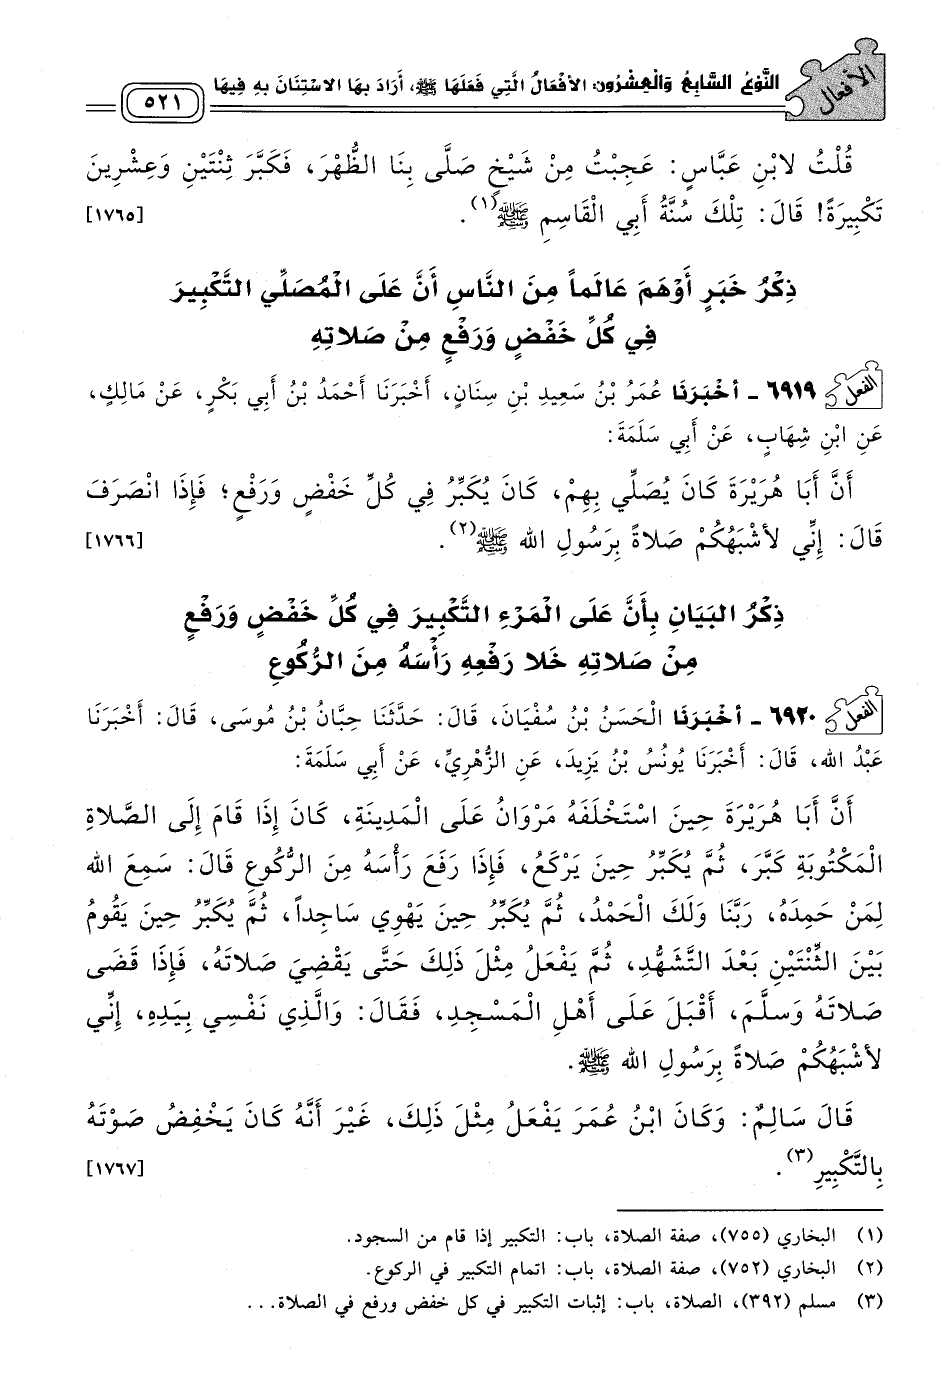 الأفعال
النَّوْعُ السَّابِعُ وَالْعِشْرُون: الأَفْعَالُ الَّتِي فَعَلَهَا ﷺ، أَرَادَ بِهَا الاسْتِنَانَ بِهِ فِيهَا
٥٢١
قُلْتُ لابْنِ عَبَّاسٍ: عَجِبْتُ مِنْ شَيْخٍ صَلَّى بِنَا الظُّهْرَ، فَكَبَّرَ ثِنْتَيْنِ وَعِشْرِينَ
تَكْبِيرَةً! قَالَ: تِلْكَ سُنَّةُ أَبِي الْقَاسِمِ ﷺ(١). [١٧٦٥]
ذِكْرُ خَبَرٍ أَوْهَمَ عَالَماً مِنَ النَّاسِ أَنَّ عَلَى الْمُصَلِّي التَّكْبِيرَ
فِي كُلِّ خَفْضٍ وَرَفْعٍ مِنْ صَلَاتِهِ
الفعل ٦٩١٩ - أخْبَرَنَا عُمَرُ بْنُ سَعِيدِ بْنِ سِنَانٍ، أَخْبَرَنَا أَحْمَدُ بْنُ أَبِي بَكْرٍ، عَنْ مَالِكٍ،
عَنِ ابْنِ شِهَابٍ، عَنْ أَبِي سَلَمَةَ:
أَنَّ أَبَا هُرَيْرَةَ كَانَ يُصَلِّي بِهِمْ، كَانَ يُكَبِّرُ فِي كُلِّ خَفْضٍ وَرَفْعٍ؛ فَإِذَا انْصَرَفَ
قَالَ: إِنِّي لأَشْبَهُكُمْ صَلاةً بِرَسُولِ الله ﷺ(٢). [١٧٦٦]
ذِكْرُ الْبَيَانِ بِأَنَّ عَلَى الْمَرْءِ التَّكْبِيرَ فِي كُلِّ خَفْضٍ وَرَفْعٍ
مِنْ صَلَاتِهِ خَلَا رَفْعِهِ رَأْسَهُ مِنَ الرُّكُوعِ
الفعل ٦٩٢٠ - أخْبَرَنَا الْحَسَنُ بْنُ سُفْيَانَ، قَالَ: حَدَّثَنَا حِبَّانُ بْنُ مُوسَى، قَالَ: أَخْبَرَنَا
عَبْدُ الله، قَالَ: أَخْبَرَنَا يُونُسُ بْنُ يَزِيدَ، عَنِ الزُّهْرِيِّ، عَنْ أَبِي سَلَمَةَ:
أَنَّ أَبَا هُرَيْرَةَ حِينَ اسْتَخْلَفَهُ مَرْوَانُ عَلَى الْمَدِينَةِ، كَانَ إِذَا قَامَ إِلَى الصَّلاةِ
الْمَكْتُوبَةِ كَبَّرَ، ثُمَّ يُكَبِّرُ حِينَ يَرْكَعُ، فَإِذَا رَفَعَ رَأْسَهُ مِنَ الرُّكُوعِ قَالَ: سَمِعَ الله
لِمَنْ حَمِدَهُ، رَبَّنَا وَلَكَ الْحَمْدُ، ثُمَّ يُكَبِّرُ حِينَ يَهْوِي سَاجِداً، ثُمَّ يُكَبِّرُ حِينَ يَقُومُ
بَيْنَ الثِّنْتَيْنِ بَعْدَ التَّشَهُّدِ، ثُمَّ يَفْعَلُ مِثْلَ ذَلِكَ حَتَّى يَقْضِيَ صَلاتَهُ، فَإِذَا قَضَى
صَلاتَهُ وَسَلَّمَ، أَقْبَلَ عَلَى أَهْلِ الْمَسْجِدِ، فَقَالَ: وَالَّذِي نَفْسِي بِيَدِهِ، إِنِّي
لأَشْبَهُكُمْ صَلاةً بِرَسُولِ الله ﷺ.
قَالَ سَالِمٌ: وَكَانَ ابْنُ عُمَرَ يَفْعَلُ مِثْلَ ذَلِكَ، غَيْرَ أَنَّهُ كَانَ يَخْفِضُ صَوْتَهُ
بِالتَّكْبِيرِ(٣). [١٧٦٧]
(١) البخاري (٧٥٥)، صفة الصلاة، باب: التكبير إذا قام من السجود.
(٢) البخاري (٧٥٢)، صفة الصلاة، باب: اتمام التكبير في الركوع.
(٣) مسلم (٣٩٢)، الصلاة، باب: إثبات التكبير في كل خفض ورفع في الصلاة...